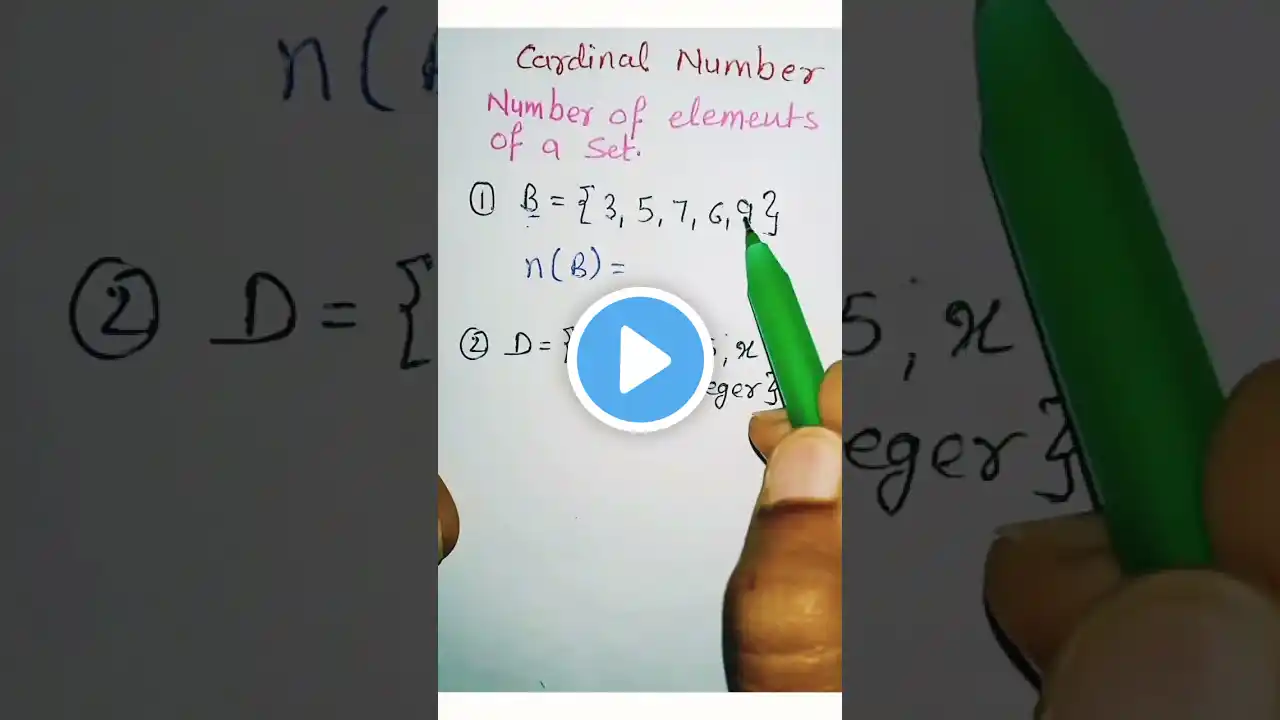 Cardinal Number
Number of elements
of a Set.
① B = { 3, 5, 7, 6, 9 }
n(B) =
② D = { 5, x
eger}